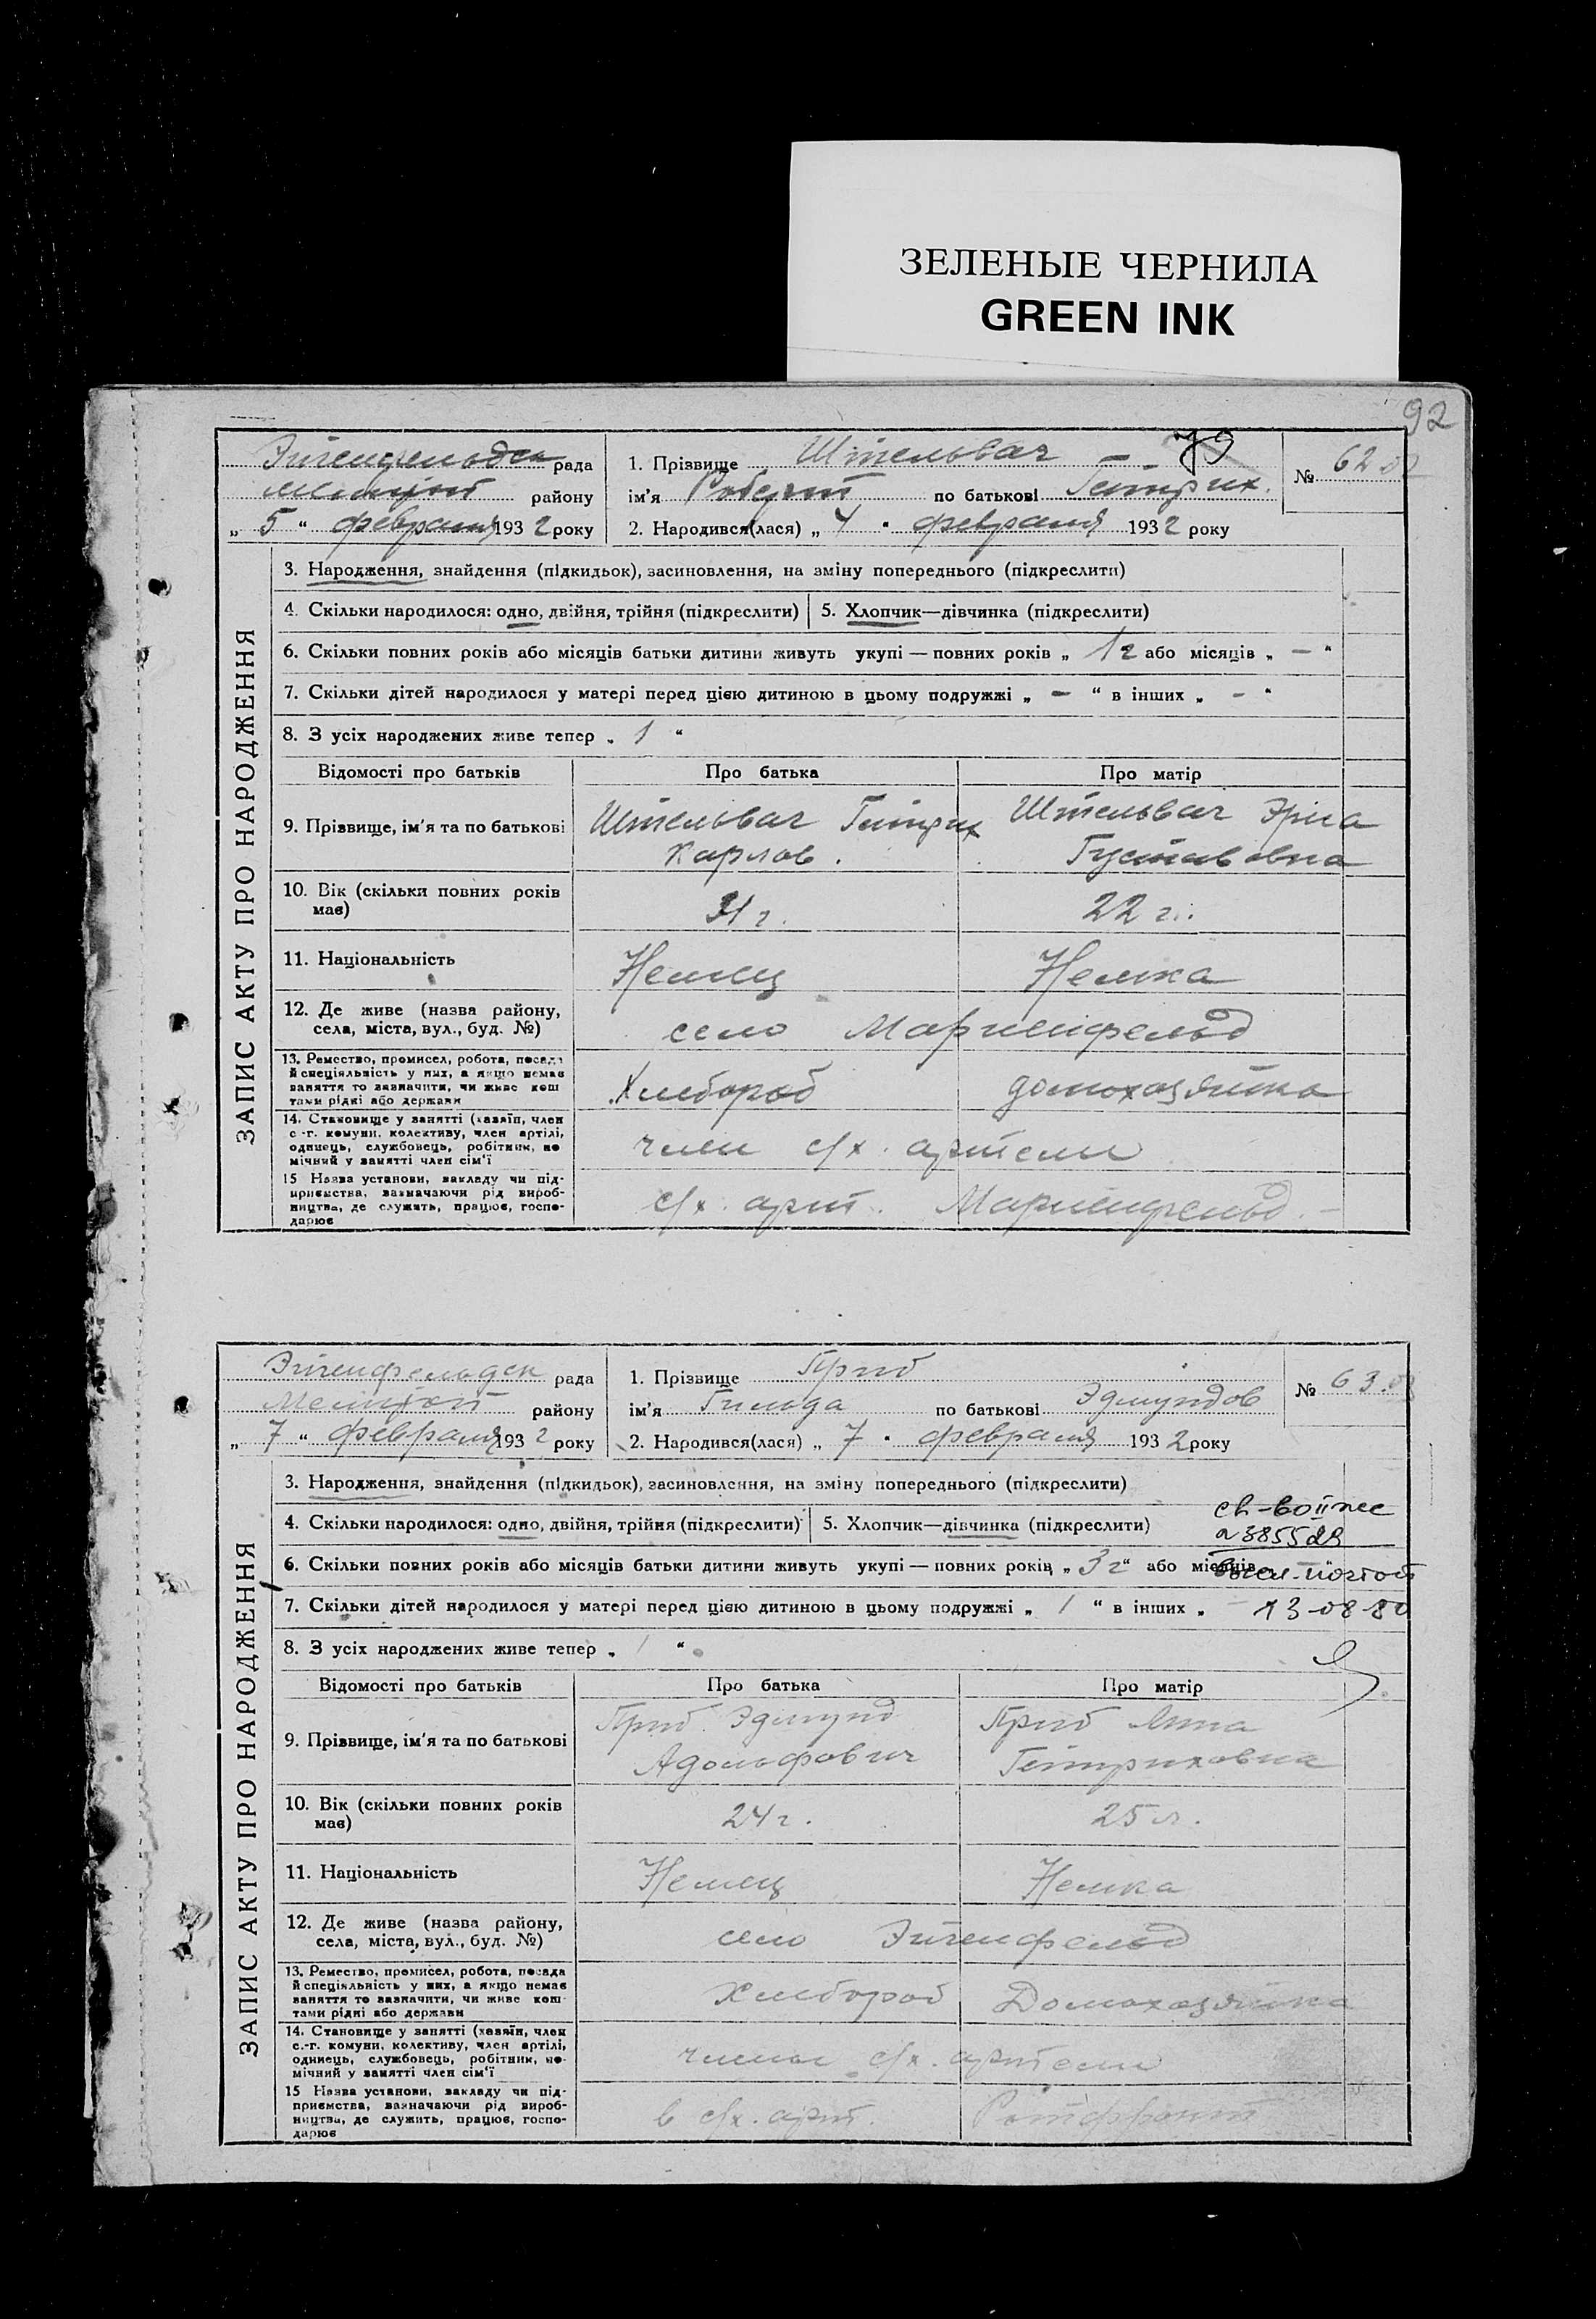 ЗЕЛЕНЫЕ ЧЕРНИЛА
GREEN INK
92
ЗАПИС АКТУ ПРО НАРОДЖЕННЯ
Эйгенфельдск рада
району
„ 5 “ февраля 1932 року
1. Прізвище Штельваг 79
ім'я Роберт по батькові Гейнрих.
2. Народився(лася) „ 4 “ февраля 1932 року
№ 62
3. Народження, знайдення (підкидьок), засиновлення, на зміну попереднього (підкреслити)
4. Скільки народилося: одно, двійня, трійня (підкреслити) 5. Хлопчик—дівчинка (підкреслити)
6. Скільки повних років або місяців батьки дитини живуть укупі — повних років „ 1г або місяців „ — “
7. Скільки дітей народилося у матері перед цією дитиною в цьому подружжі „ — “ в інших „ - “
8. З усіх народжених живе тепер „ 1 “
Відомості про батьків Про батька Про матір
9. Прізвище, ім'я та по батькові
Штельваг Гейнрих
Карлов.
Штельваг Эрна
Густавовна
10. Вік (скільки повних років
має)
31 г. 22 г.
11. Національність Немец Немка
12. Де живе (назва району,
села, міста, вул., буд. №)
село Мариенфельд
13. Ремество, промисел, робота, посада
й спеціяльність у них, а якщо немає
заняття то зазначити, чи живе кош
тами рідні або держави
Хлебороб домохозяйка
14. Становище у занятті (хазяїн, член
с.-г. комуни, колективу, член артілі,
одинець, службовець, робітник, по
мічний у занятті член сім'ї
член с/х. артели
15 Назва установи, закладу чи під-
приємства, зазначаючи рід вироб-
ництва, де служить, працює, госпо-
дарює
с/х. арт. Мариенфельд. —
ЗАПИС АКТУ ПРО НАРОДЖЕННЯ
Эйгенфельдск рада
району
„ 7 “ февраля 1932 року
1. Прізвище
ім'я Гильда по батькові Эдмундов
2. Народився(лася) „ 7 “ февраля 1932 року
№ 63
3. Народження, знайдення (підкидьок), засиновлення, на зміну попереднього (підкреслити)
4. Скільки народилося: одно, двійня, трійня (підкреслити) 5. Хлопчик—дівчинка (підкреслити)
6. Скільки повних років або місяців батьки дитини живуть укупі — повних років „ 3 г “ або місяців
7. Скільки дітей народилося у матері перед цією дитиною в цьому подружжі „ 1 “ в інших „ —
13-08-80
8. З усіх народжених живе тепер „ 1 “
Відомості про батьків Про батька Про матір
9. Прізвище, ім'я та по батькові
Эдмунд
Адольфович
Анна
Гейнриховна
10. Вік (скільки повних років
має)
24 г. 25 л.
11. Національність Немец Немка
12. Де живе (назва району,
села, міста, вул., буд. №)
село Эйгенфельд
13. Ремество, промисел, робота, посада
й спеціяльність у них, а якщо немає
заняття то зазначити, чи живе кош-
тами рідні або держави
Хлебороб Домохозяйка
14. Становище у занятті (хазяїн, член
с.-г. комуни, колективу, член артілі,
одинець, службовець, робітник, по-
мічний у занятті член сім'ї
члены с/х. артели
15 Назва установи, закладу чи під-
приємства, зазначаючи рід вироб-
ництва, де служить, працює, госпо-
дарює
в с/х. арт. Ротфронт